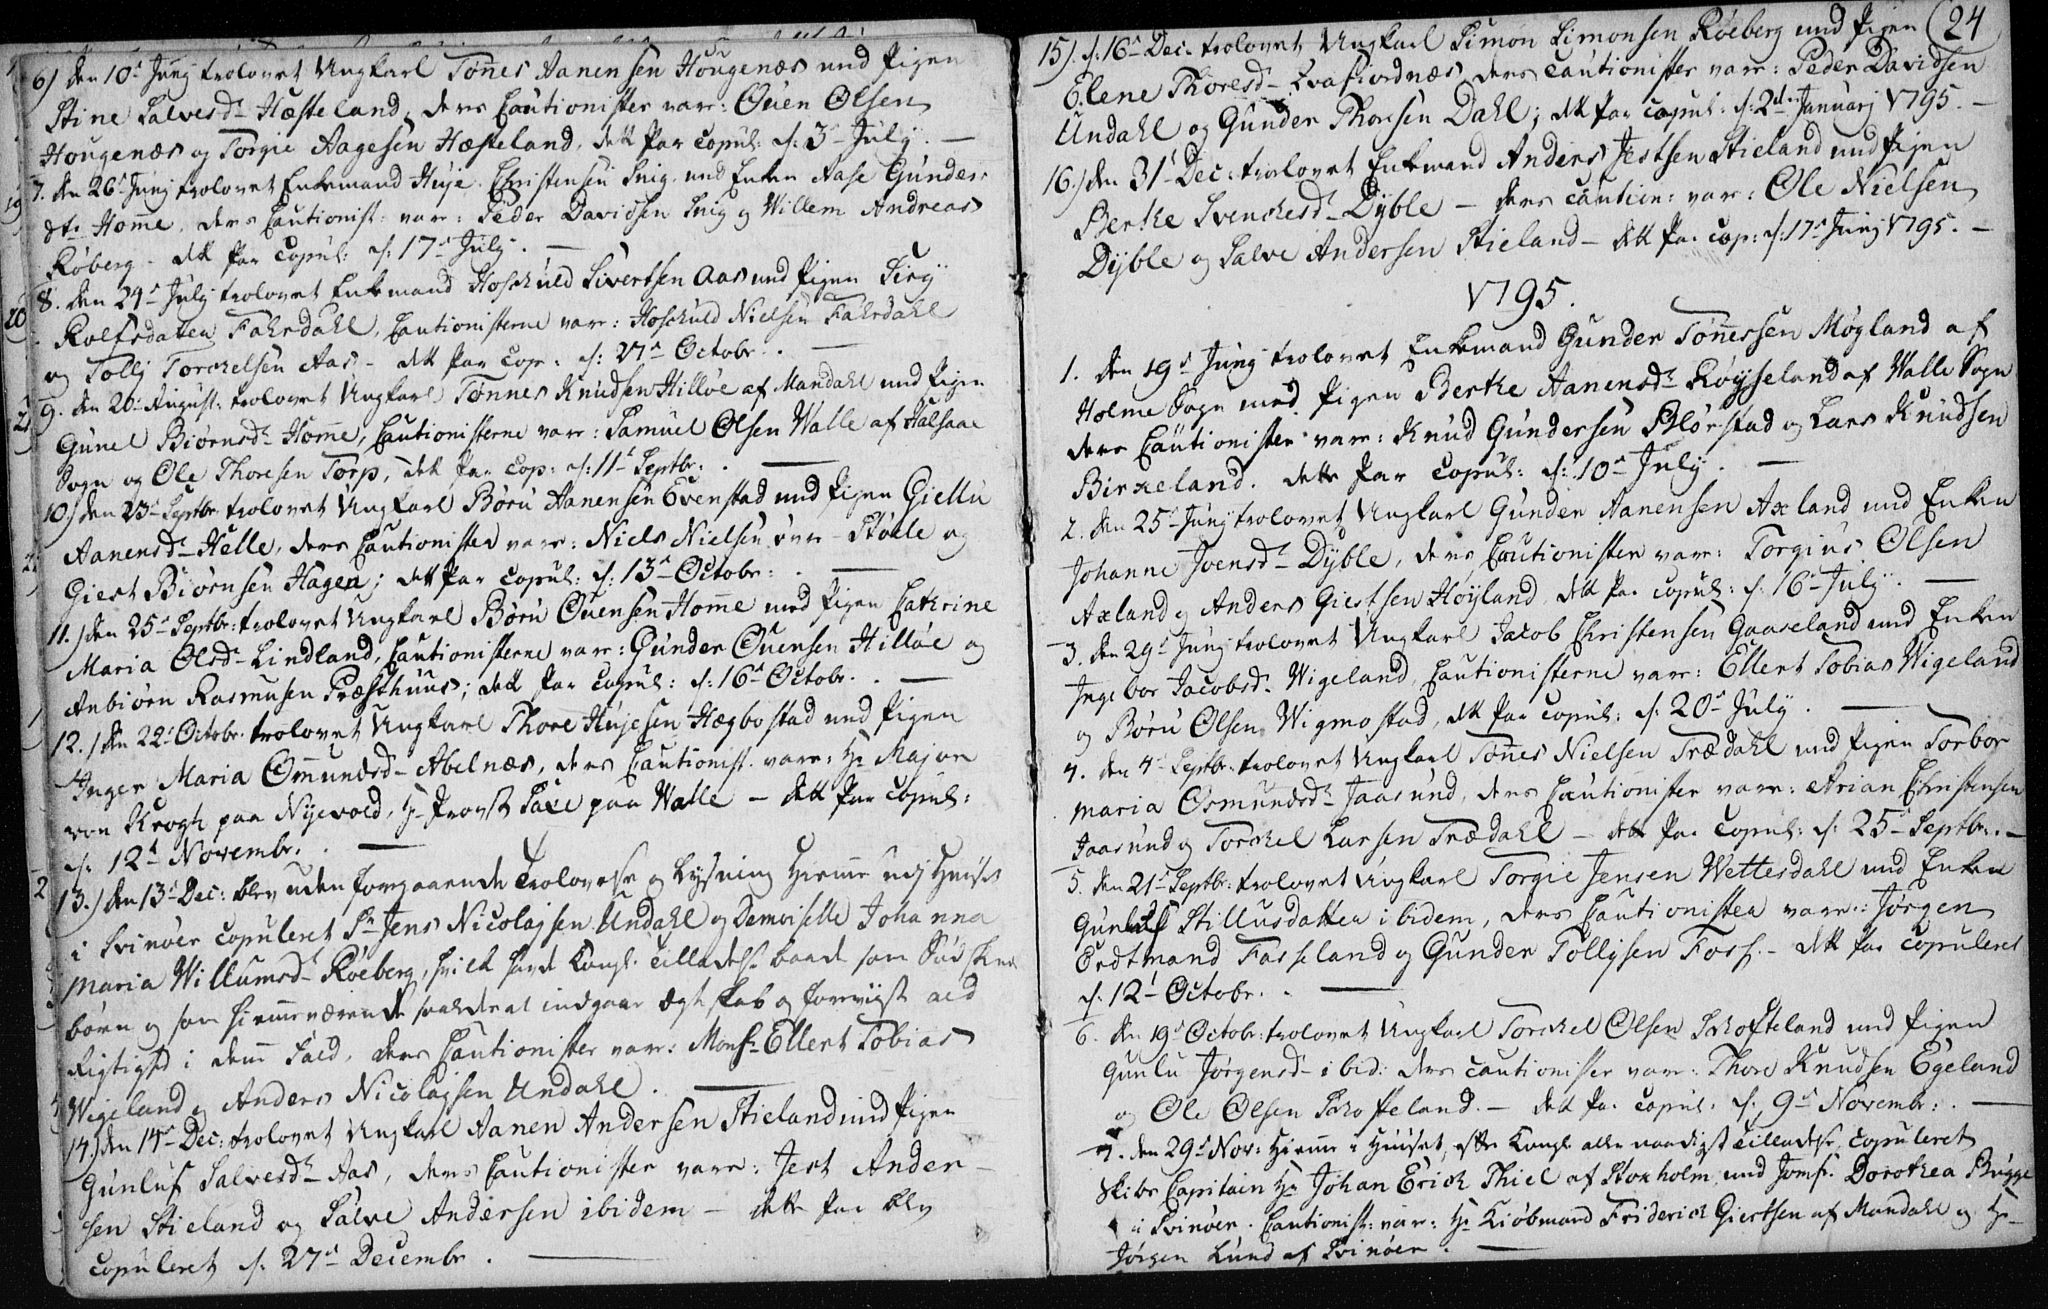 6) den 10d Junij trolovet Ungkarl Tönnes Aanensen Hougenæs med Pigen
Stine Salvesd- Hæsteland, ders Cautionister vare: Ouen Olsen
Hougenæs og Torgie Aagesen Hæsteland, dette Par Copul: d: 3d July. —
7. den 26d Junij trolovet Enkemand Huje Christensen Snig med Enken Aase Gunders
dtr Homme, ders Cautionist: vare: Peder Davidsen Snig og Willem Andreas
Röberg - dette Par Copul: d: 17d July. —
8. den 24d July trolovet Enkemand Hoskuld Sivertsen Aas med Pigen Siri
Rolfsdatter Fahrdahl, Cautionisterne vare: Hoskuld Nielsen Fahrdahl
og Tollj Torckelsen Aas - dette Par Cop: d: 27d Octobr. —
9. den 20d August: trolovet Ungkarl Tønnes Knudsen Hilløe af Mandahl med Pigen
Gunel Biørnsdr Homme, Cautionisterne vare: Samuel Olsen Walle af Halsaae
Sogn og Ole Thoresen Torp, dette Par Cop: d: 11d Septbr: . —
10.) den 23d Septbr trolovet Ungkarl Børu Aanensen Evenstad med Pigen Giellu
Aanensd- Helle, ders Cautionister vare: Niels Nielsen øvre - Støele og
Giert Biørnsen Hagen; dette Par Copul: d: 13d Octobr: . —
11.) den 25d Septbr: trolovet Ungkarl Børu Ouensen Homme med Pigen Cathrine
Maria Olsd- Lindland, Cautionisterne vare: Gunder Ouensen Hilløe og
Anbiørn Rasmusen Præsthuus; dette Par Copul: d: 16d Octobr. . —
12.) den 22d Octobr. trolovet Ungkarl Thore Hujesen Hægbostad med Pigen
Inger Maria Omundsd- Abelnæs, ders Cautionist. vare: Hr Major
von Krogh paa Nyevold, Hr Provst Saxe paa Walle — dette Par Copul:
d. 12d Novembr. . —
13.) den 13d Dec: blev uden foregaaende Trolovelse og Lysning hiemme udj Huuset
i Svinøer copuleret Sr Jens Nicolajsen Undahl og Demoiselle Johanna
Maria Willumsdr Roeberg, hvilk havde Kongl: Tilladelse baade som Sødskende
børn og som hiemmeværende saaledes at indgaae Ægteskab og foreviist al
Rigtighd i dem Fald, ders Cautionister vare: Monsr Ellert Tobias
Wigeland og Anders Nicolajsen Undahl. —
14.) den 14d Dec: trolovet Ungkarl Aanen Andersen Stieland med Pigen
Gunluf Salvesd- Aas, ders Cautionister vare: Jert Ander-
sen Stieland og Salve Andersen ibidem - dette Par blev
copuleret d. 27d Decembr. —
24
15). d: 16d Dec. trolovet Ungkarl Simon Simonsen Röeberg med Pigen
Elene Thoresd- Svafiordnæs, ders Cautionister vare: Peder Davidsen
Undahl og Gunder Thoresen Dahl; dette Par copul: d: 2d Januarj 1795. —
16.) den 31d Dec: trolovet Enkemand Anders Jertsen Stieland med Pigen
Berthe Svenchesd- Dyble - ders Caution: var: Ole Nielsen
Dyble og Salve Andersen Stieland - dette Par cop: d: 17d Junij 1795. —
1795.
1. den 19d Junij trolovet Enkemand Gunder Tönnessen Møgland af
Holme Sogn med Pigen Berthe Aanensdr Røyseland af Walle Sogn
ders Cautionister vare: Knud Gundersen Blørstad og Lars Knudsen
Birkeland. dette Par Copul: d: 10d July. —
2. den 25d Junij trolovet Ungkarl Gunder Aanensen Axland med Enken
Johanne Joensdr Dyble, ders Cautionister vare: Torgius Olsen
Axland og Anders Giertsen Høyland, dette Par copul: d: 16d July. —
3. den 29d Junij trolovet Ungkarl Jacob Christensen Gaaseland med Enken
Ingebor Jacobsd. Wigeland, Cautionisterne vare: Ellert Tobias Wigeland
og Børu Olsen Wigmostad, dette Par copul: d: 20d July. —
4. den 4d Septbr. trolovet Ungkarl Tönnes Nielsen Trædahl med Pigen Torbor
Maria Osmundsdr Jaasund, ders Cautionister vare: Arian Christensen
Jaasund og Torckel Larsen Trædahl - dette Par Copul: d: 25d Septbr. —
5. den 21d Septbr: trolovet Ungkarl Torgie Jensen Wettesdahl med Enken
Gunluf Stillusdatter ibidem, ders Cautionister vare: Jørgen
Erdtmand Fasseland og Gunder Tollysen Foss. - dette Par Copuleret
d: 12d Octobr. . —
6. den 19d Octobr: trolovet Ungkarl Torckel Olsen Skofteland med Pigen
Gunlu Jørgensd- ibid: ders cautionister var: Thore Knudsen Egeland
og Ole Olsen Skofteland. - dette Par copul: d. 9d Novembr: . —
7. den 29d Nov: hiemme i Huuset, efter Kongl: aller naadigst Tilladelse, copuleret
Skibs Capitain Hr Johan Erich Thiel af Stokholm med Jomfr: Dorothea Brügge
i Svinøer. Cautionist: var: Hr Kiøbmand Friderich Giertsen af Mandahl og Hr
Jørgen Lund af Svinøer. —